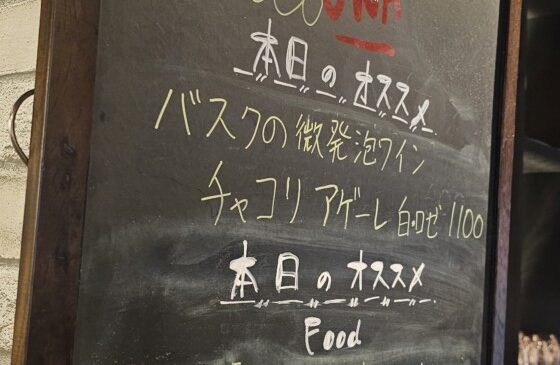 本日のオススメ
バスクの微発泡ワイン
チャコリ アゲーレ 白・ロゼ 1100
本日のオススメ
Food